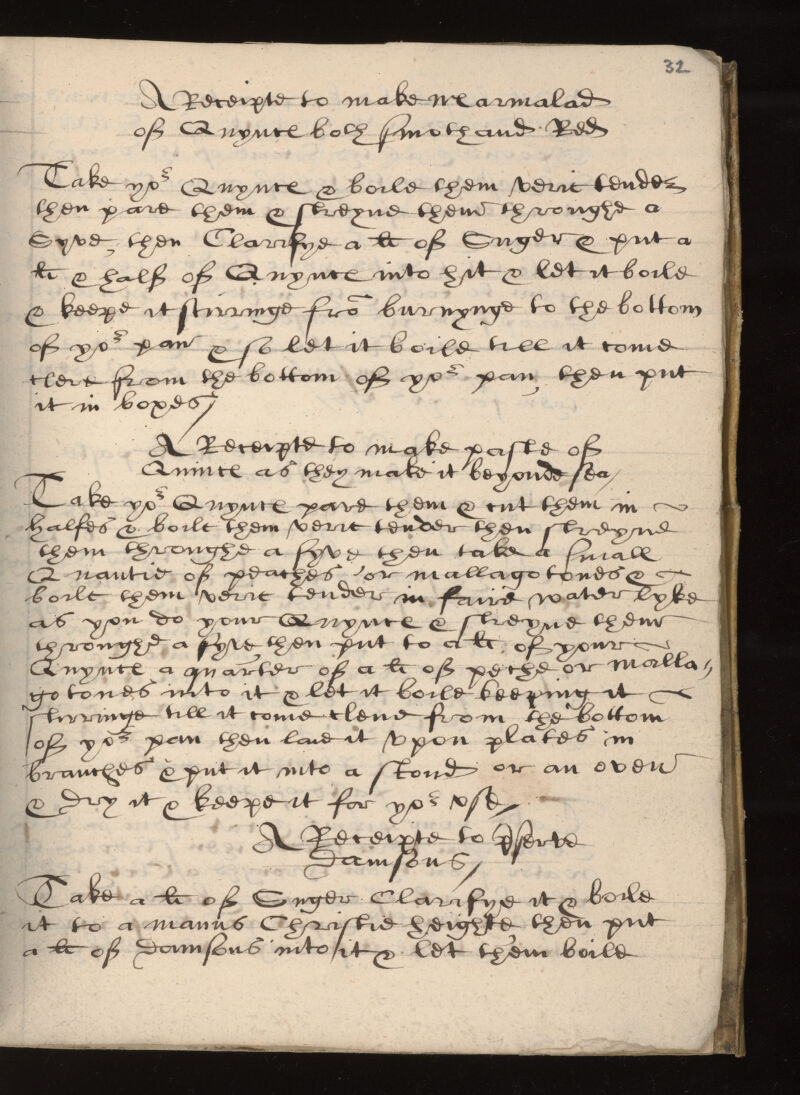 32
A Receipte to make Marmalad
of Quynce both smoth and Red
Take yor Quynce & boile them verie tender
then pare them & streyne them throughe a
Syve, then Clarifye a lb of Suger & put a
lb & half of Quynce into hit & let it boile
& keepe it stirringe fro burnynge to the bottom
of yor pan & so let it boile till it come
clere from the bottom of yor pan, then put
it in boxes/
A Receipte to make paste of
Quince as they make it beyonde sea/
Take yor Quynce pare them & cut them in
halfes & boile them verie tender then streyne
them throughe a syve then take a small
Quantie of peaches or mallagotones &
boile them verie tender in faire water lyke
as you do your Quynce & streyne them
throughe a syve, then put to a lb of your
Quynce a quarter of a lb of peche or malla
gotones into it & let it boile keeping it
stirringe till it come clene from the bottom
of yor pan then laie it vpon plates in
branches & put it into a stond or an oven
& dry it & keepe it for yor vse/
A Receipte to pserve
damsons/
Take a lb of Suger Clarifye it & boile
it to a manus Christie heighte then put
a lb of damsons into it & let them boile